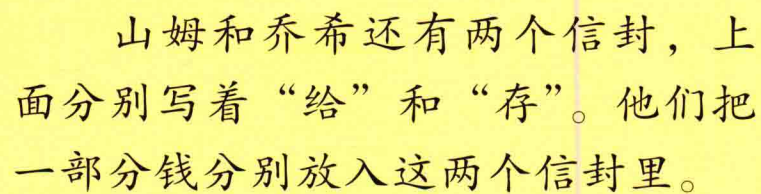 山姆和乔希还有两个信封，上
面分别写着“给”和“存”。他们把
一部分钱分别放入这两个信封里。